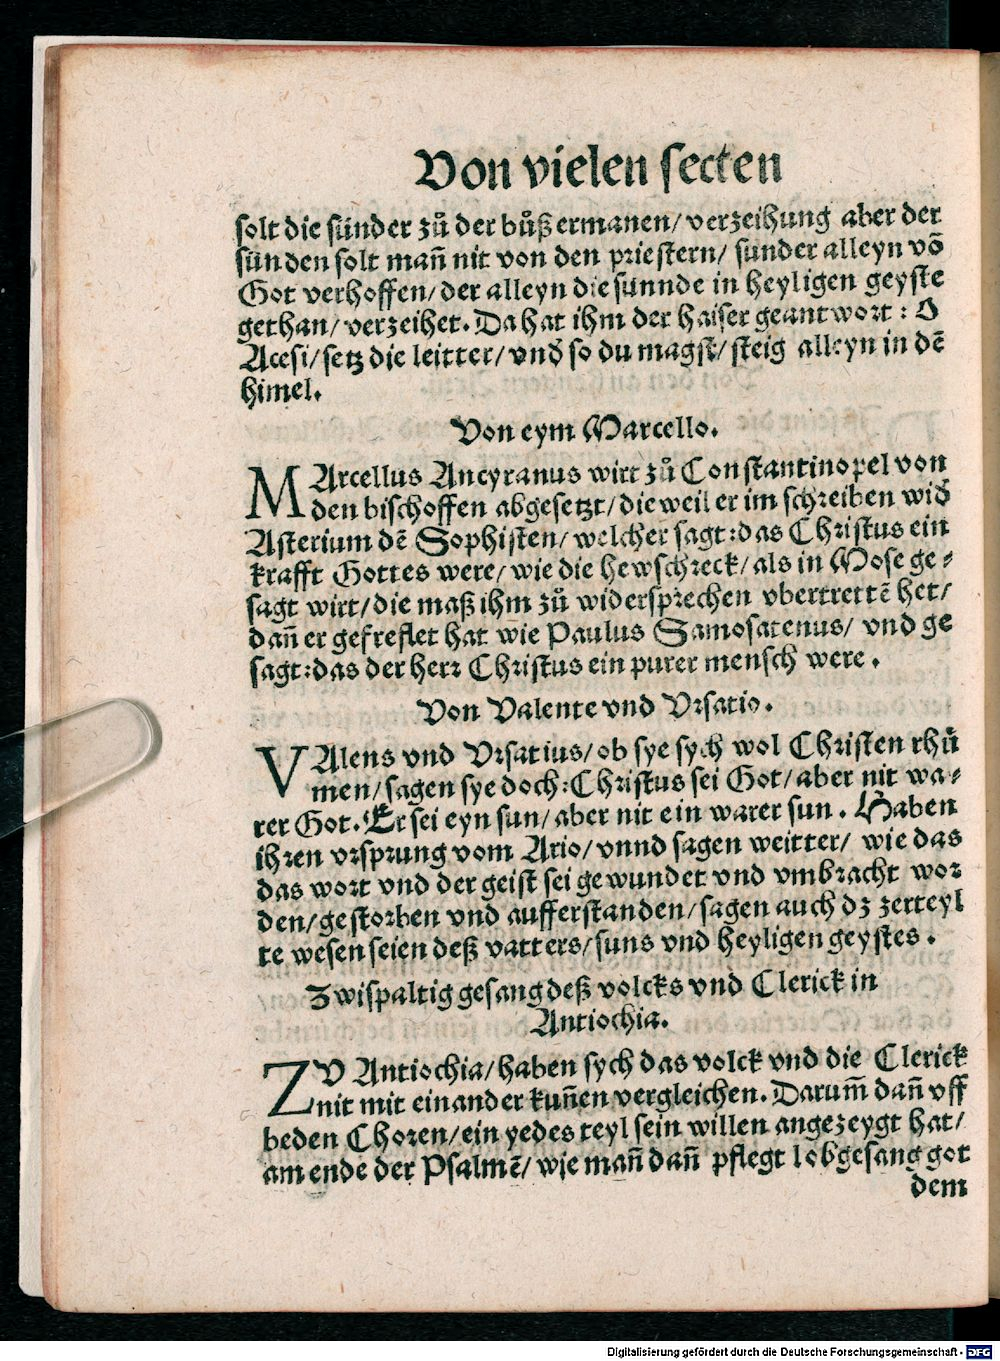 Von vielen secten
solt die sünder zů der bůß ermanen/ verzeihung aber der
sünden solt mañ nit von den priestern/ sunder alleyn võ
Got verhoffen/ der alleyn die sünnde in heyligen geyste
gethan/ verzeihet. Da hat ihm der haiser geantwort: O
Acesi/ setz die leitter/ vnd so du magst/ steig alleyn in dẽ
himel.
Von eym Marcello.
MArcellus Ancyranus wirt zů Constantinopel von
den bischoffen abgesetzt/ dieweil er im schreiben wid̕
Asterium dẽ Sophisten/ welcher sagt: das Christus ein
krafft Gottes were/ wie die hewschreck/ als in Mose ge⸗
sagt wirt/ die maß ihm zů widersprechen vbertrettẽ het/
dañ er gefreflet hat wie Paulus Samosatenus/ vnd ge
sagt: das der herr Christus ein purer mensch were.
Von Valente vnd Vrsatio.
VAlens vnd Vrsatius/ ob sye sych wol Christen rhů
men/ sagen sye doch: Christus sei Got/ aber nit wa⸗
rer Got. Er sei eyn sun/ aber nit ein warer sun. Haben
ihren vrsprung vom Ario/ vnnd sagen weitter/ wie das
das wort vnd der geist sei gewundet vnd vmbracht wor
den/ gestorben vnd aufferstanden/ sagen auch dz zerteyl
te wesen seien deß vatters/ suns vnd heyligen geystes.
Zwispaltig gesang deß volcks vnd Clerick in
Antiochia.
ZV Antiochia/ haben sych das volck vnd die Clerick
nit mit einander kuñen vergleichen. Darum̃ dañ vff
beden Choren/ ein yedes teyl sein willen angezeygt hat/
am ende der Psalmẽ/ wie mañ dañ pflegt lobgesang got
dem
Digitalisierung gefördert durch die Deutsche Forschungsgemeinschaft - DFG